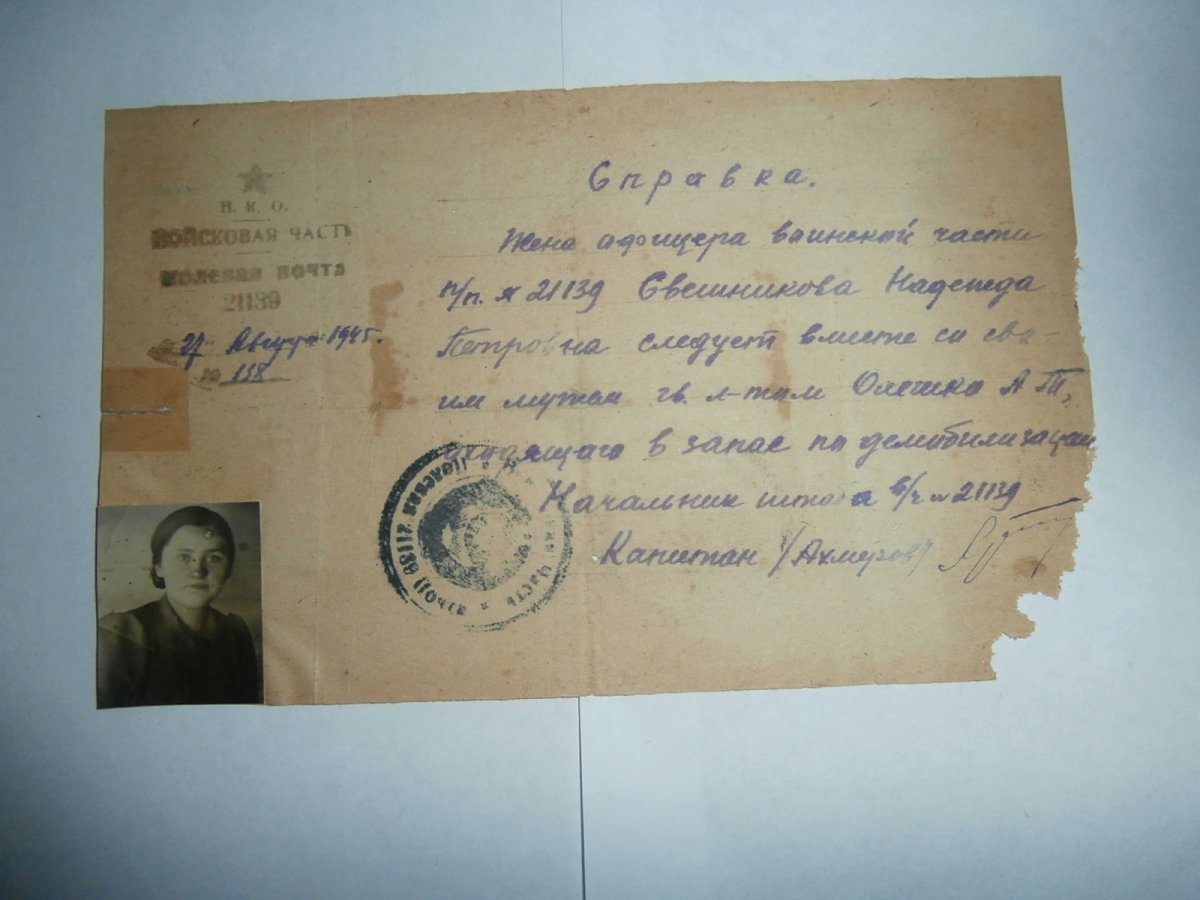 Н. К. О.
ВОЙСКОВАЯ ЧАСТЬ
ПОЛЕВАЯ ПОЧТА
21139
27 Августа 1945 г.
№ 138
Справка.
Жена офицера воинской части
п/п. № 21139 Свешникова Надежда
Петровна следует вместе со сво-
им мужем гв. л-том Олешко А.Т.,
уходящего в запас по демобилизации
Начальник штаба в/ч № 21139
Капитан /Ахмеров/
Полевая почта 21139
часть